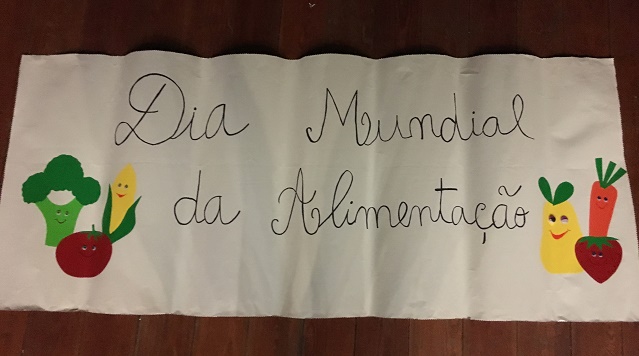 Dia Mundial
da Alimentação